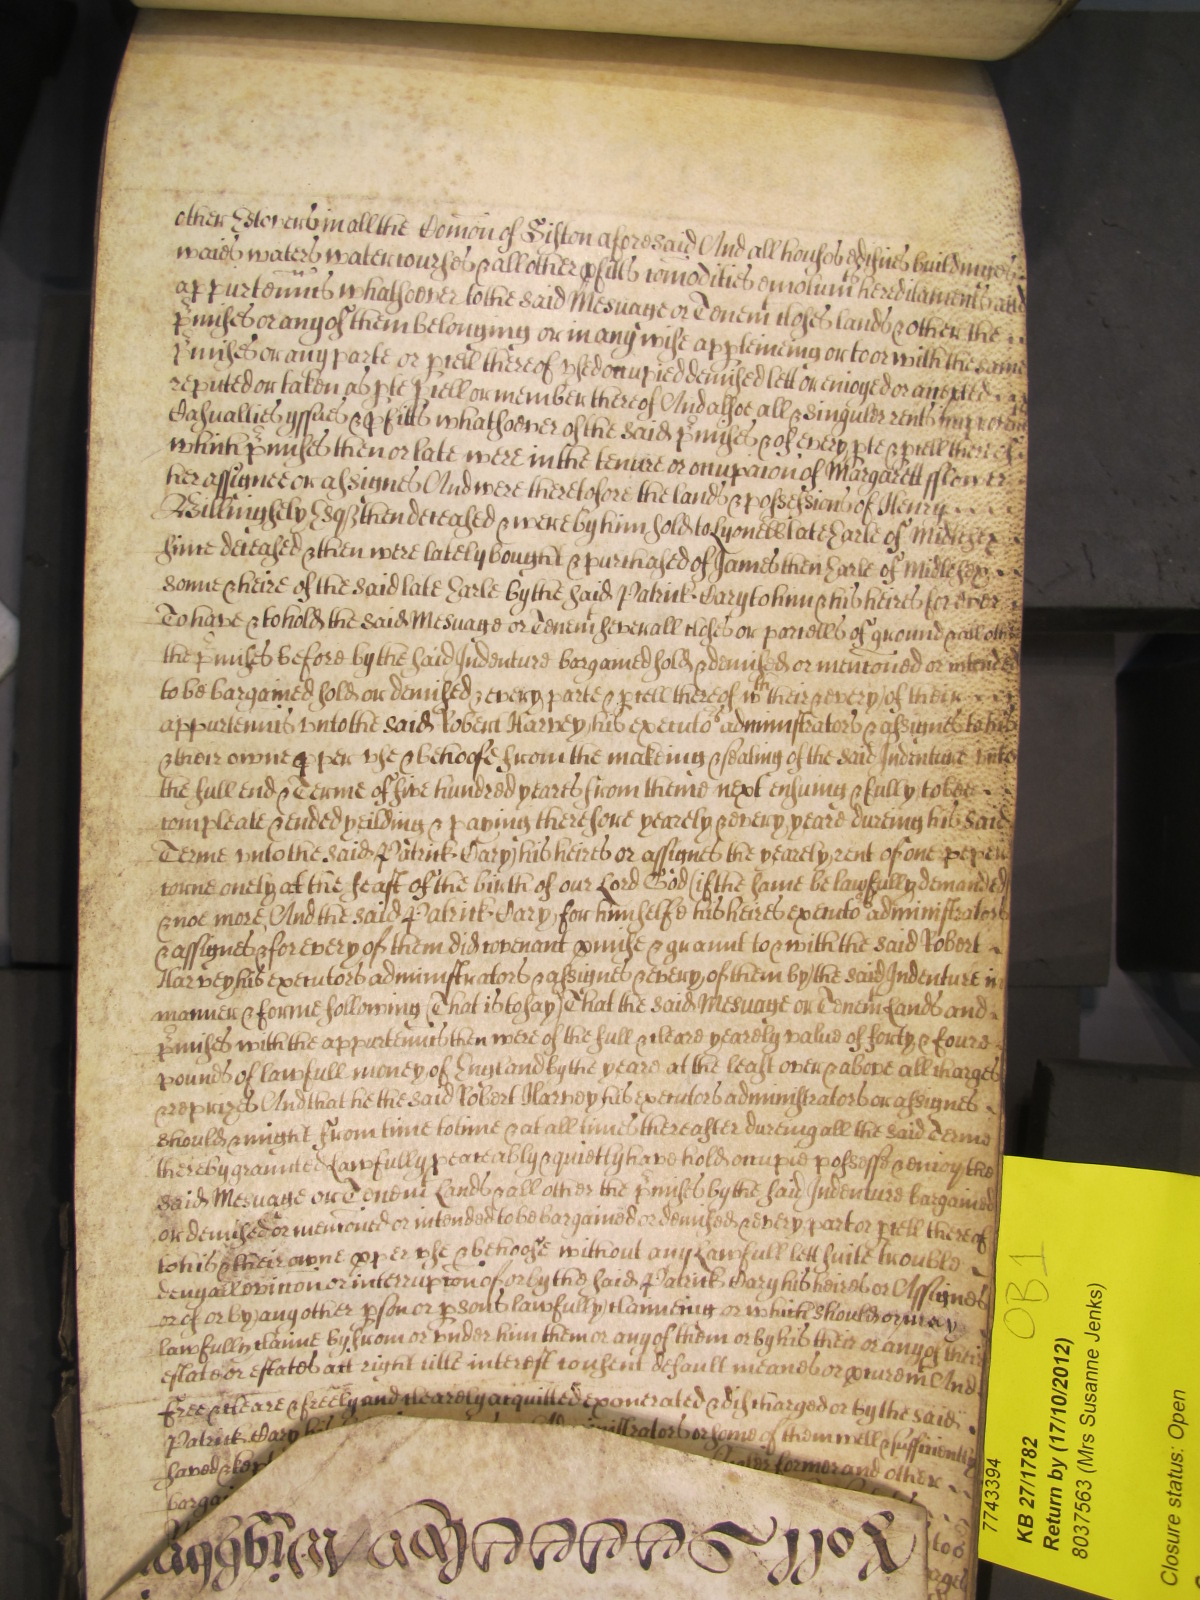 other Estovers in all the Comon of Siston aforesaid And all houses edifices buildinges
waies waters watercourses & all other pfitts comodities emolumts hereditaments and
appurtennts whatsoever to the said Mesuage or Tenemt closes lands & other the
pmises or any of them belonging or in any wise apperteineing or to or with the same
pmises or any parte or pcell thereof used occupied demised lett or enioyed or accepted
reputed or taken as pte pcell or member thereof And alsoe all & singuler rents
Casualties yssues & pfitts whatsoever of the said pmises & of every pte & pcell thereof
which pmises then or late were in the tenure or occupacion of Margarett fflower
her assignee or assignes And were theretofore the lands & possessions of Henry
Billingsley Esqr then deceased & were by him sold to Lyonell late Earle of Midlesex
since deceased & then were lately bought & purchased of James then Earle of Midlesex
sonne & heire of the said late Earle by the said Patrick Cary to him & his heires for ever
To have & to hold the said Mesuage or Tenemt severall closes or parcells of ground & all other
the pmises before by the said Indenture bargained sold & demised or mencoued or intended
to be bargained sold or demised & every parte & pcell thereof wth their & every of their
appurtennts unto the said Robert Harvey his executors administrators & assignes to his
& their owne pper use & behoofe from the makeing & sealing of the said Indenture unto
the full end & Terme of five hundred yeares from thence next ensuing & fully to bee
compleate & ended yeilding & paying therefore yearely & every yeare dureing his said
Terme unto the said Patrick Cary his heires or assignes the yearely rent of one pepper
corne onely at the feast of the birth of our Lord God (if the same be lawfully demanded)
& noe more And the said Patrick Cary for himselfe his heires executors administrators
& assignes & for every of them did covenant pmise & graunt to & with the said Robert
Harvey his executors administrators & assignes & every of them by the said Indenture in
manner & forme following (That is to say) That the said Mesuage or Tenemt Lands and
pmises with the appurtennts then were of the full & cleare yearely value of forty & foure
pounds of lawfull money of England by the yeare at the least over & above all charges
& reprizes And that he the said Robert Harvey his executors administrators or assignes
should & might from time to time & at all times thereafter dureing all the said Terme
thereby graunted Lawfully peaceably & quietly have hold occupie possesse & enioy the
said Mesuage or Tenemt Lands & all other the pmises by the said Indenture bargained
or demised or mencoued or intended to be bargained or demised & every part or pcell thereof
to his & their owne pper use & behoofe without any Lawfull lett suite trouble
denyall eviccion or interrupcion of or by the said Patrick Cary his heires or Assignes
or of or by any other pson or psons lawfully claimeing or which should or may
lawfully claime by from or under him them or any of them or by his their or any of their
estate or estates act right title interest consent default meanes or pcuremt And
Free & cleare & freely and clearely acquitted exonerated & discharged or by the said
Patrick Cary administrators or some of them well & sufficiently
saved & kept former and other
bargai
Roll
7743394
KB 27/1782
Return by (17/10/2012)
8037563 (Mrs Susanne Jenks)
Closure status: Open
OB1